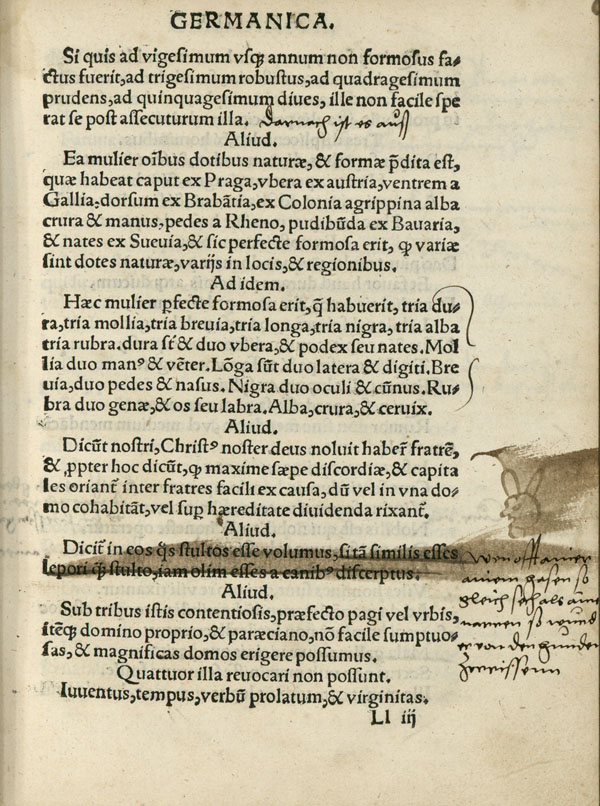 GERMANICA.
Si quis ad vigesimum vsqꝫ annum non formosus fa⸗
ctus fuerit, ad trigesimum robustus, ad quadragesimum
prudens, ad quinquagesimum diues, ille non facile spe
rat se post assecuturum illa. Darnach ist es auß
Aliud.
Ea mulier oĩbus dotibus naturæ, & formæ p̃dita est,
quæ habeat caput ex Praga, vbera ex austria, ventrem a
Gallia, dorsum ex Brabãtia, ex Colonia agrippina alba
crura & manus, pedes a Rheno, pudibũda ex Bauaria,
& nates ex Sueuia, & sic perfecte formosa erit, ꝙ variæ
sint dotes naturæ, varijs in locis, & regionibus.
Ad idem.
Hæc mulier ꝑfecte formosa erit, q̃ habuerit, tria du⸗
ra, tria mollia, tria breuia, tria longa, tria nigra, tria alba
tria rubra. dura st̃ & duo vbera, & podex seu nates. Mol
lia duo manꝰ & vẽter. Lõga sũt duo latera & digiti. Bre
uia, duo pedes & nasus. Nigra duo oculi & cũnus. Ru⸗
bra duo genæ, & os seu labra. Alba, crura, & ceruix.
Aliud.
Dicũt nostri, Christꝰ noster deus noluit haber̃ fratrẽ,
& ꝓpter hoc dicũt, ꝙ maxime sæpe discordiæ, & capita
les oriant̃ inter fratres facili ex causa, dũ vel in vna do⸗
mo cohabitãt, vel suꝑ hæreditate diuidenda rixant̃.
Aliud.
Dicit̃ in eos q̃s stultos esse volumus, si tã similis esses
lepori q̃ stulto, iam olim esses a canibꝰ discerptus.
Aliud.
Sub tribus istis contentiosis, præfecto pagi vel vrbis,
itẽqꝫ domino proprio, & paræciano, nõ facile sumptuo⸗
sas, & magnificas domos erigere possumus.
Quattuor illa reuocari non possunt.
Iuuentus, tempus, verbũ prolatum, & virginitas.
Ll iij
ainem hasen so
gleich sech als aime
narren so wurd
er von den hunden
Zerrissenn